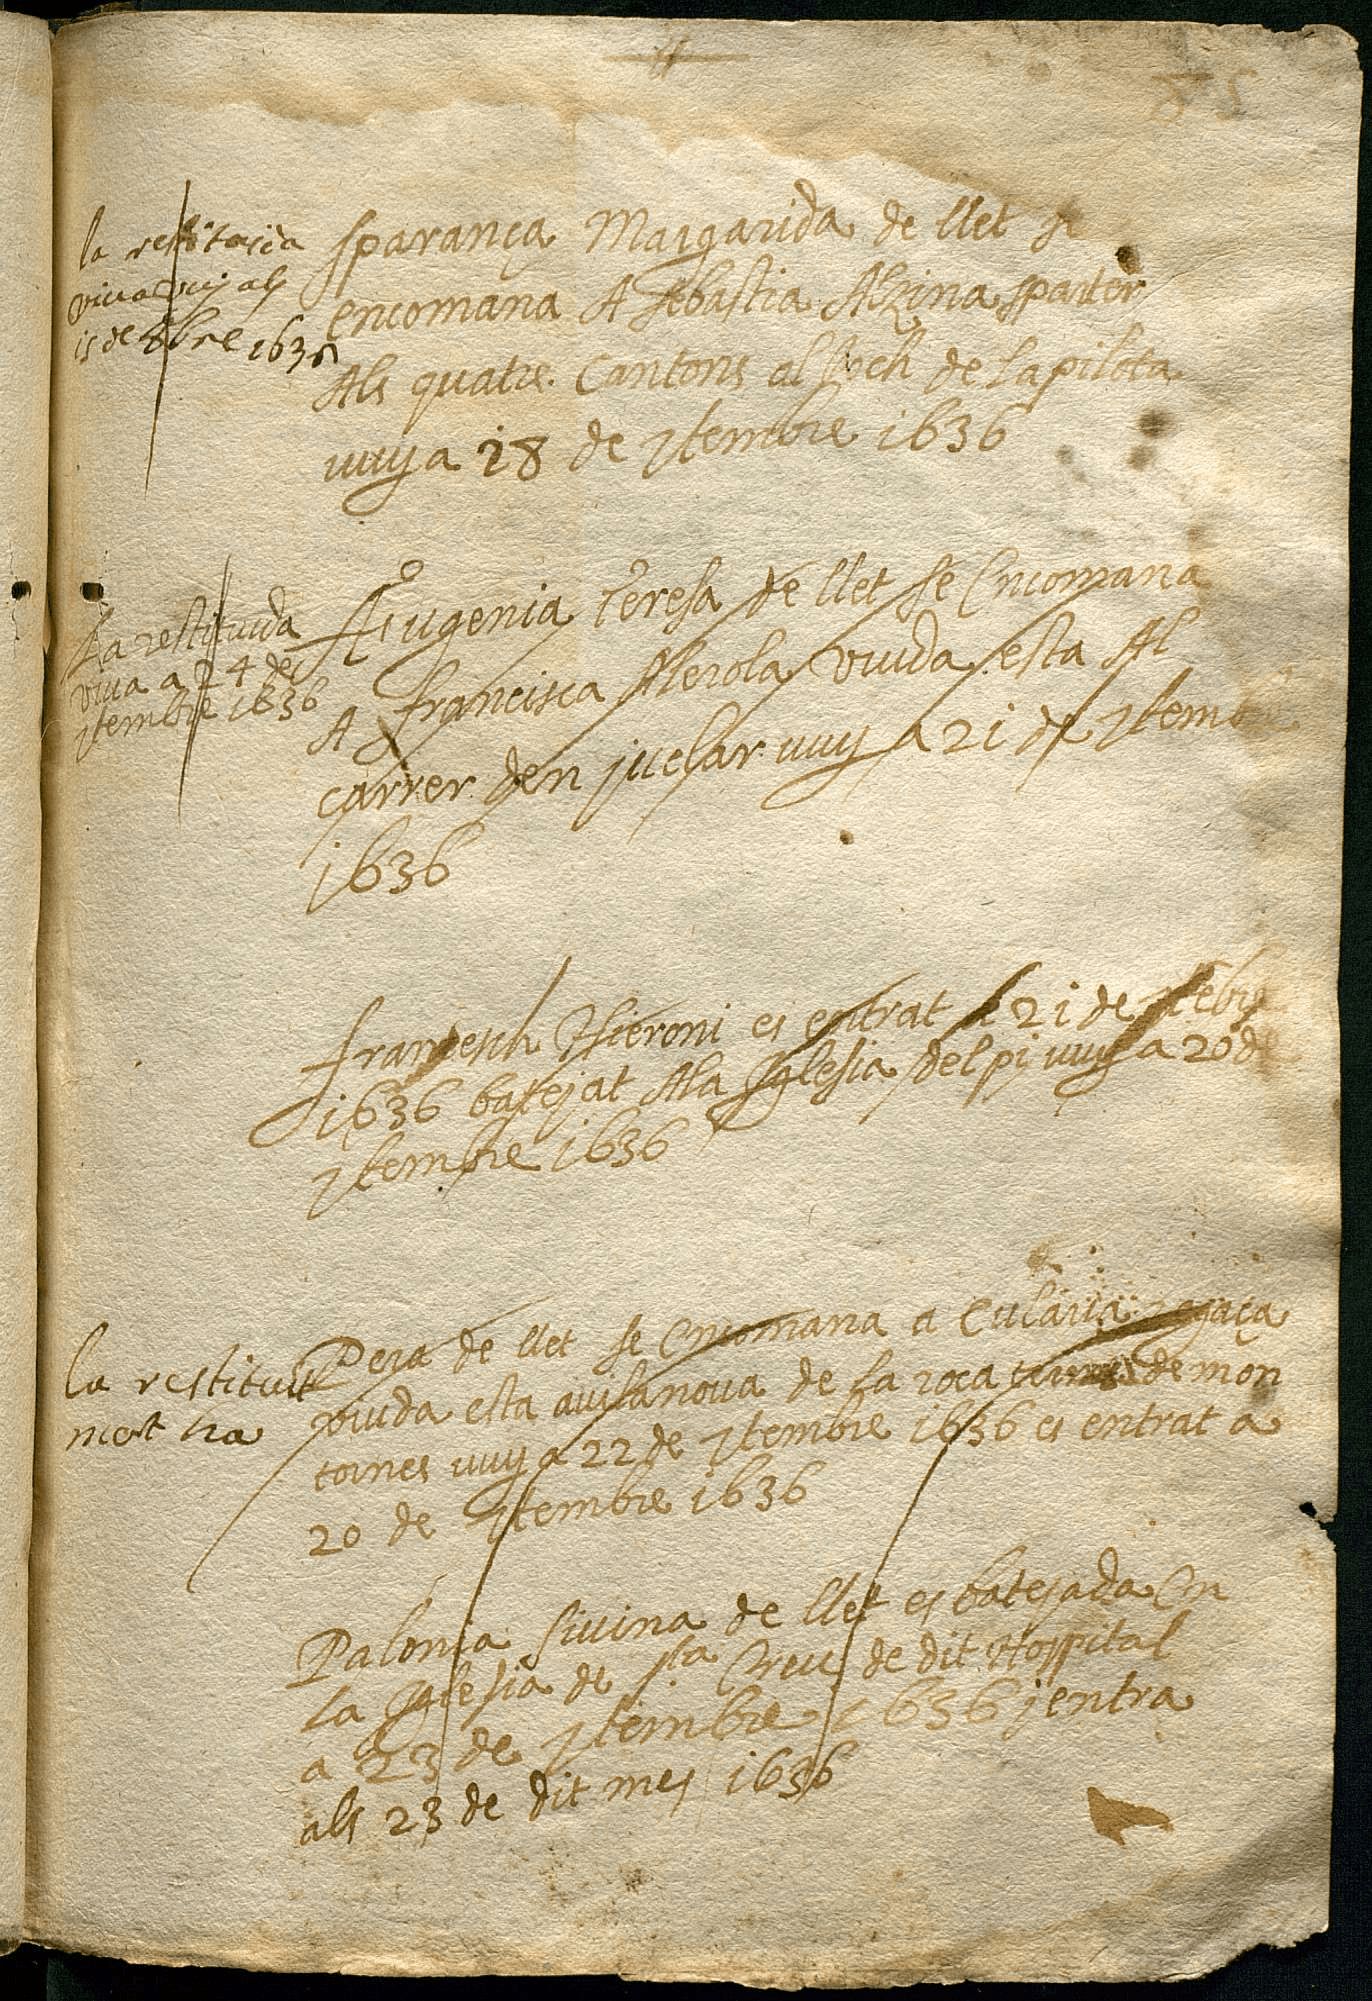 la restituida
viva vuy als
is de 8bre 1636
sparança Margarida de llet se
encomana A sebastia Alzina sparter
Als quatre Cantons al Joch de la pilota
vuy a 18 de 7tembre 1636
La restituida
viva a 24 de
7tembre 1636
Eugenia teresa de llet se Encomana
A francisca Alerola viuda esta Al
carrer den juclar vuy a 21 de 7tembre
1636
francesch Hieroni es entrat a 21 de 7tebre
1636 batejat A la Iglesia del pi vuy a 20 de
7tembre 1636
la restituit
mort na
Pera de llet se Encomana a Eularia
viuda esta a vilanova de la roca de mon
tornes vuy a 22 de 7tembre 1636 es entrat a
20 de 7tembre 1636
Palonia sivina de llet es batejada En
la Iglesia de sta Creu de dit Hospital
a 23 de 7tembre 1636 j entra
als 23 de dit mes 1636